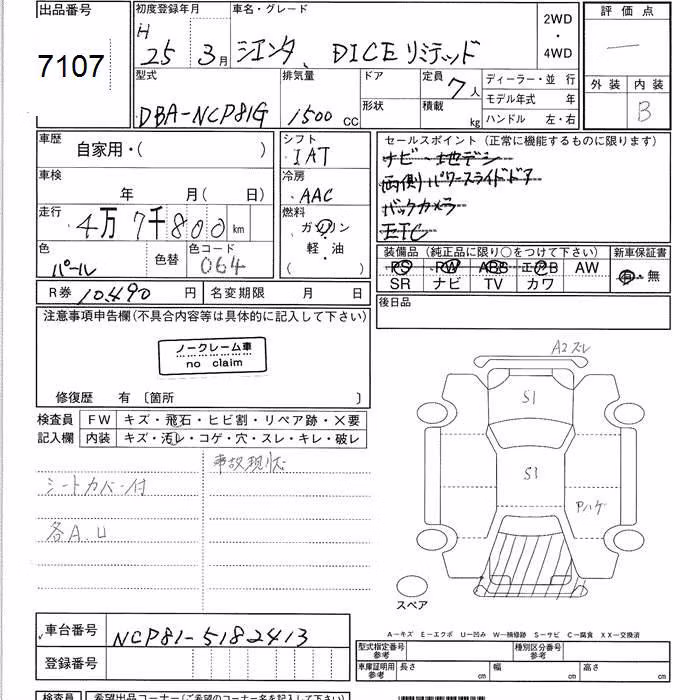 出品番号
7107
初度登録年月
H
25 3月
車名・グレード
シエンタ、DICEリミテッド
2WD
・
4WD
評価点
外装 内装
B
型式
DBA-NCP81G
排気量
1500 CC
ドア
形状
定員
7人
積載
kg
ディーラー・並 行
モデル年式 年
ハンドル 左・右
車歴
自家用・( )
車検
年 月( 日)
走行
4万7千800km
色
パール
色替
色コード
064
シフト
IAT
冷房
AAC
燃料
ガソリン
軽・油
( )
セールスポイント (正常に機能するものに限ります)
ナビ・地デジ
両側パワースライドドア
バックカメラ
ETC
装備品 (純正品に限り○をつけて下さい)
PS PW ABS エアB AW
SR ナビ TV カワ
新車保証書
有・無
R券 10,490円
名変期限 月 日
後日品
注意事項申告欄(不具合内容等は具体的に記入して下さい)
ノークレーム車
no claim
修復歴 有 〔箇所 〕
検査員
記入欄
FW キズ・飛石・ヒビ割・リペア跡・×要
内装 キズ・汚レ・コゲ・穴・スレ・キレ・破レ
事故現状
シートカバー付
各A.U
A2ズレ
S1
S1
Pハゲ
スペア
A―キズ E―エクボ U―凹み W―補修跡 S―サビ C―腐食 XX―交換済
車台番号
NCP81-5182413
登録番号
型式指定番号
参考
種別区分番号
参考
車庫証明用
参考
長さ cm 幅 cm 高さ cm
検査員 希望出品コーナー(ご希望のコーナー名を記入下さい)